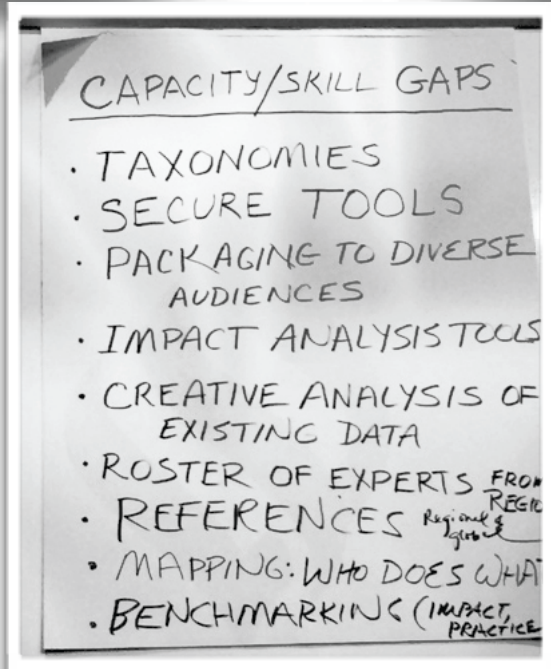 CAPACITY/SKILL GAPS
· TAXONOMIES
· SECURE TOOLS
· PACKAGING TO DIVERSE
AUDIENCES
· IMPACT ANALYSIS TOOLS
· CREATIVE ANALYSIS OF
EXISTING DATA
· ROSTER OF EXPERTS FROM
REGIO
· REFERENCES Regional &
global
· MAPPING: WHO DOES WHAT
· BENCHMARKING (IMPACT,
PRACTICE